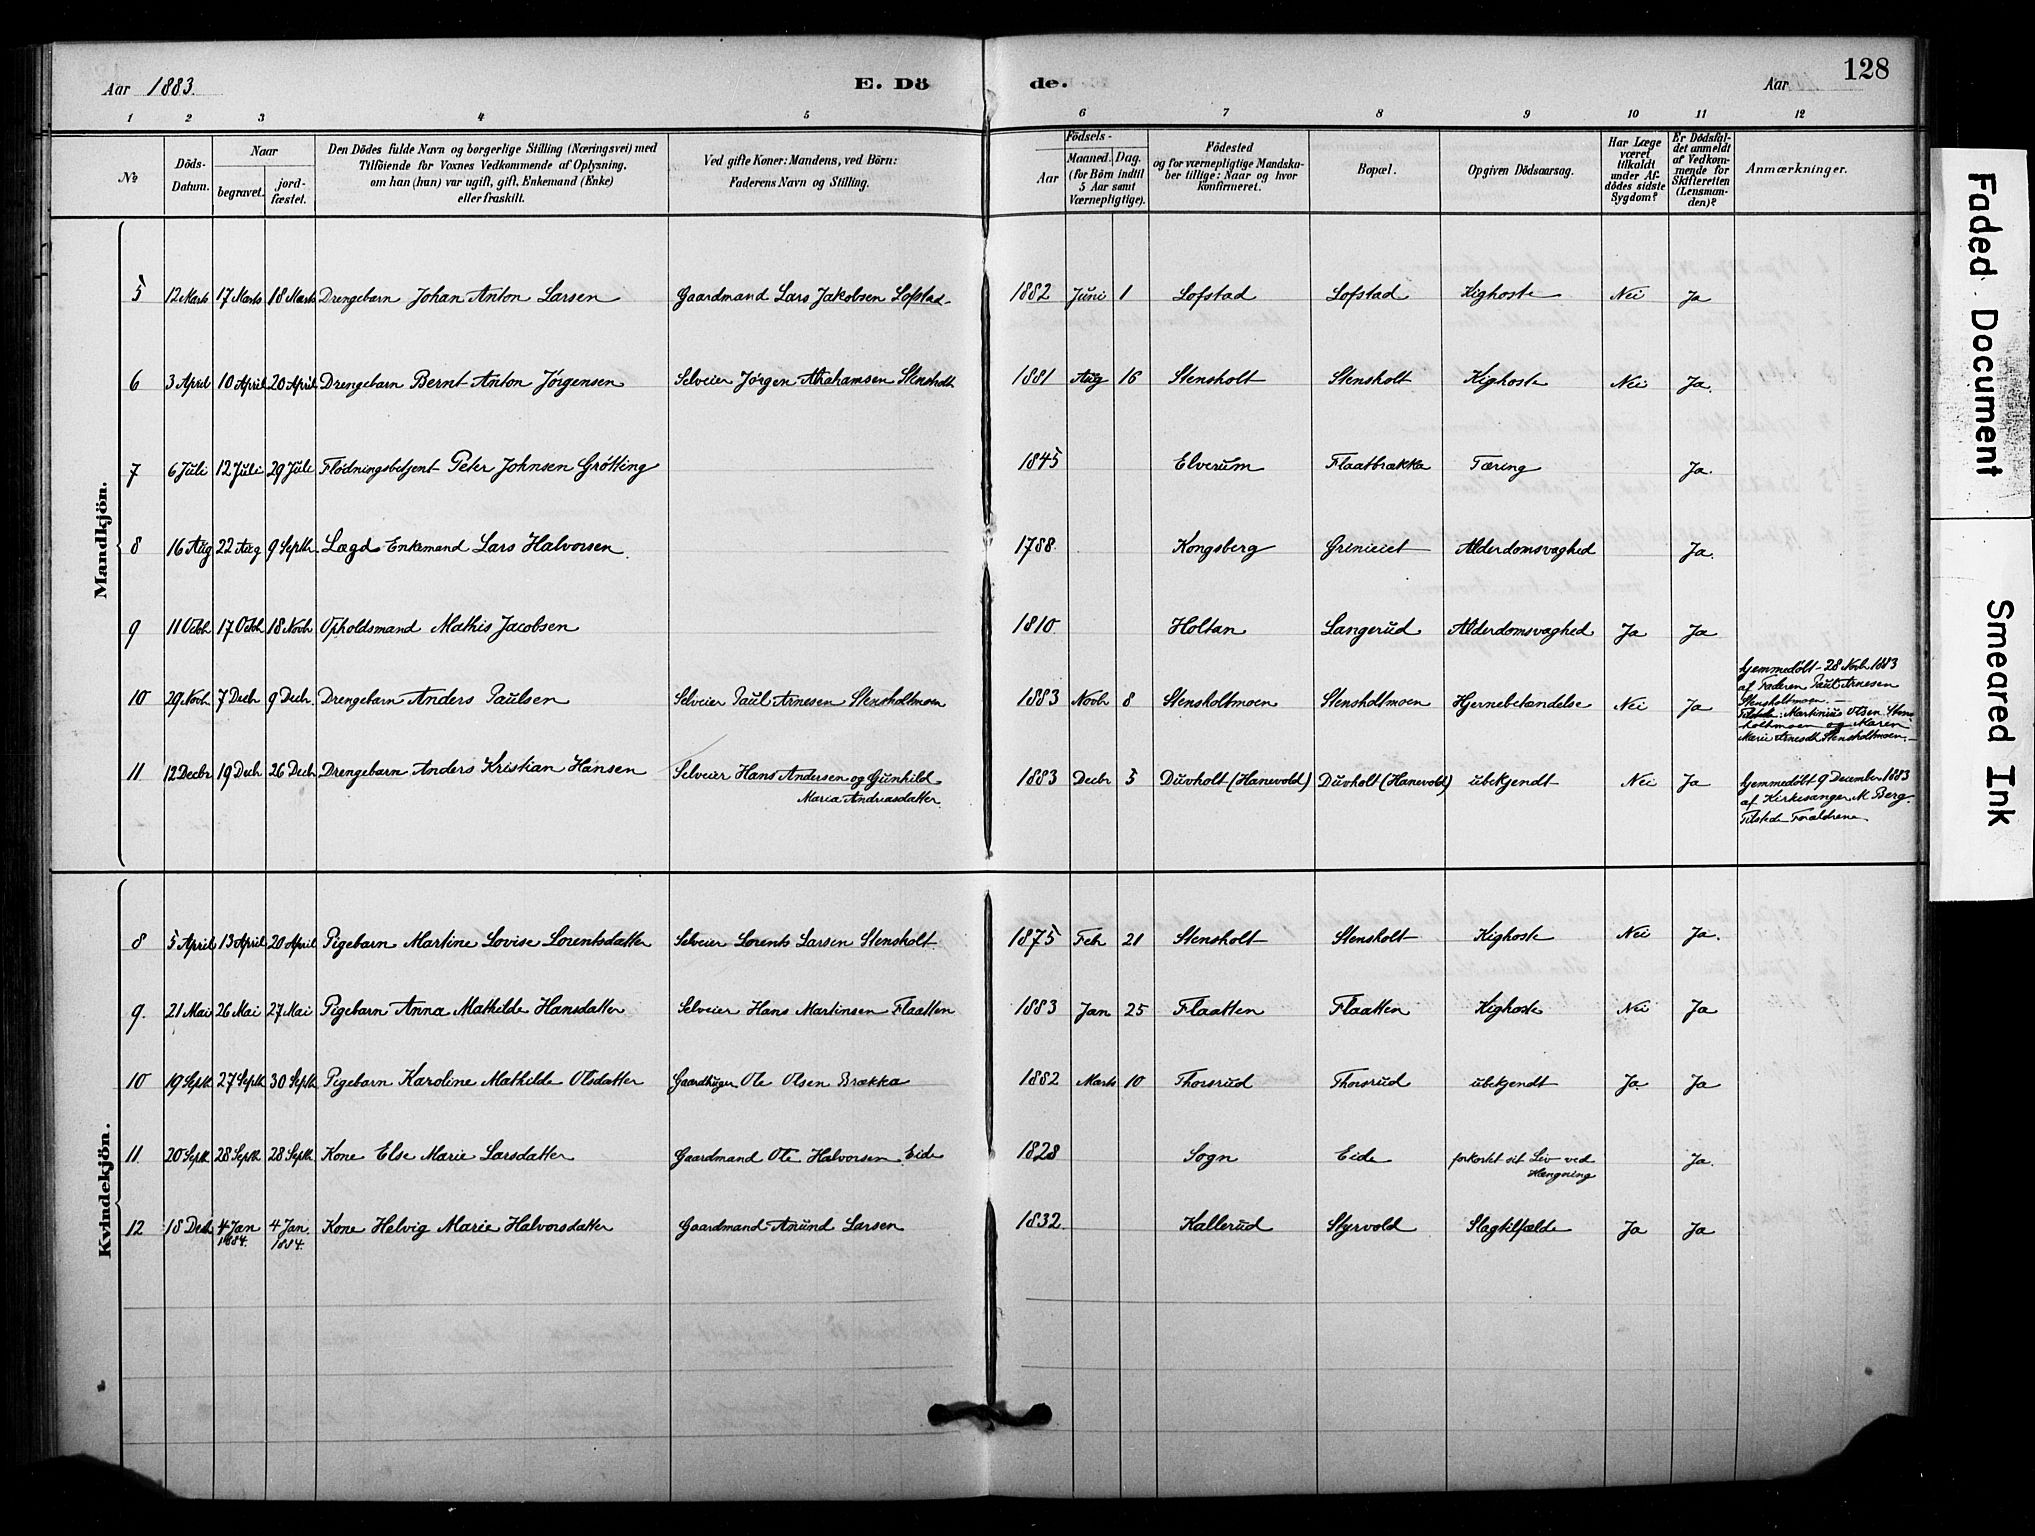 Aar 1883.
E. Dö de.
Aar
128
1 2 3 4 5 6 7 8 9 10 11 12
No
Döds-Datum.
Naar
begravet.
jord-fæstet.
Den Dödes fulde Navn og borgerlige Stilling (Næringsvei) med
Tilföiende for Voxnes Vedkommende af Oplysning,
om han (hun) var ugift, gift, Enkemand (Enke)
eller fraskilt.
Ved gifte Koner: Mandens, ved Börn:
Faderens Navn og Stilling.
Födsels-
Aar
Maaned. Dag.
(for Börn indtil
5 Aar samt
Værnepligtige).
Födested
og for værnepligtige Mandska-
ber tillige: Naar og hvor
konfirmeret.
Bopæl.
Opgiven Dödsaarsag.
Har Læge
været
tilkaldt
under Af-
dödes sidste
Sygdom?
Er Dödsfal-
det anmeldt
af Vedkom-
mende for
Skifteretten
(Lensman-
den)?
Anmærkninger.
Mandkjön.
5 12 Marts 17 Marts 18 Marts Drengebarn Johan Anton Larsen Gaardmand Lars Jakobsen Lofstad 1882 Juni 1 Lofstad Lofstad Kighoste Nei Ja
6 3 April 10 April 20 April Drengebarn Bernt Anton Jörgensen Selveier Jörgen Abrahamsen Stensholt 1881 Aug 16 Stensholt Stensholt Kighoste Nei Ja.
7 6 Juli 12 Juli 29 Juli Flødningsbetjent Peter Johnsen Grötting 1845 Elverum Flaatbrækka Tæring Ja.
8 16 Aug 22 Aug 9 Septb. Lægd Enkemand Lars Halvorsen. 1788 Kongsberg Alderdomsvaghed Ja.
9 11 Octb 17 Octb 18 Novb Opholdsmand Mathis Jacobsen 1810 Holtan Langerud Alderdomsvaghed Ja Ja
10 29 Novb 7 Decb 9 Decb. Drengebarn Anders Paulsen Selveier Paul Arnesen Stensholtmoen 1883 Novb 8 Stensholtmoen Stensholtmoen Hjernebetændelse Nei Ja
hjemmedøbt 28 Novb. 1883
af Faderen Paul Arnesen
Stensholtmoen. -
Tilstede: Martinius Olsen Stens-
holtmoen og Maren
Marie Arnesdt. Stensholtmoen. -
11 12 Decbr 19 Decb 26 Decb Drengebarn Anders Kristian Hansen Selveier Hans Andersen og Gunhild
Maria Andreasdatter 1883 Decbr 5 Duvholt (Hanevold) Duvholt (Hanevold) ubekjendt Nei Ja
hjemmedøbt 9 December 1883
af Kirkesanger M. Berg.
Tilstede Forældrene
Kvindekjön.
8 5 April 13 April 20 April Pigebarn Martine Lovise Lorentsdatter Selveier Lorents Larsen Stensholt 1875 Feb 21 Stensholt Stensholt Kighoste Nei Ja.
9. 21 Mai 26 Mai 27 Mai Pigebarn Anna Mathilde Hansdatter Selveier Hans Martinsen Flaatten 1883 Jan 25 Flaatten Flaatten Kighoste Nei Ja
10 19 Septb 27 Septb 30 Septb Pigebarn Karoline Mathilde Olsdatter Ole Olsen Brækka 1882 Marts 10 Thorsrud Thorsrud ubekjendt Ja. Ja
11. 20 Septb 28 Septb 28 Septb Kone Else Marie Larsdatter Gaardmand Ole Halvorsen Eide 1828 Sogn Eide forkortet sit Liv ved
Hængning Ja.
12 18 Decb 4 Jan
1884. 4 Jan.
1884. Kone Helvig Marie Halvorsdatter Gaardmand Anund Larsen 1832 Kallerud Styrvold Slagtilfælde Ja Ja
Faded Document
Smeared Ink